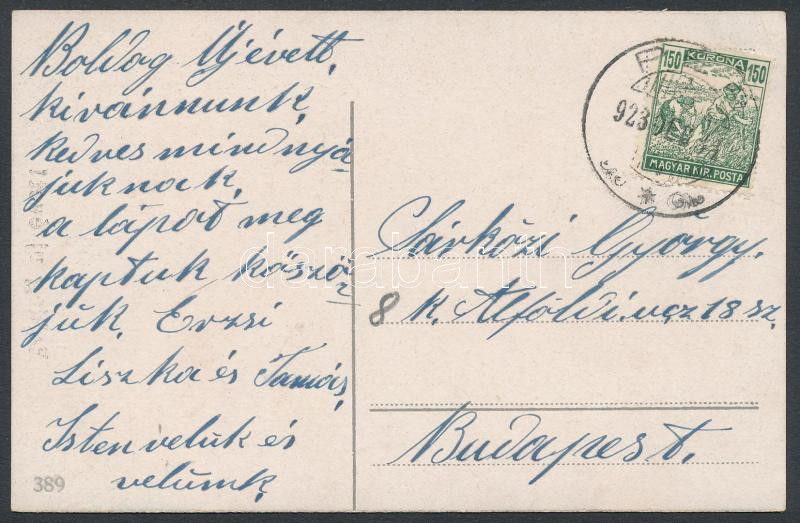 Boldog Újévett,
kivánnunk,
kedves mindnyá
juknak,
a lápot meg
kaptuk köszö
jük. Erzsi
Liszka és Tamás,
Isten velük és
velünk,
389
150 KORONA 150
MAGYAR KIR. POSTA
923
Sárközi György.
8 k. Alföldi u cz 18 sz.
Budapest.
darabanth